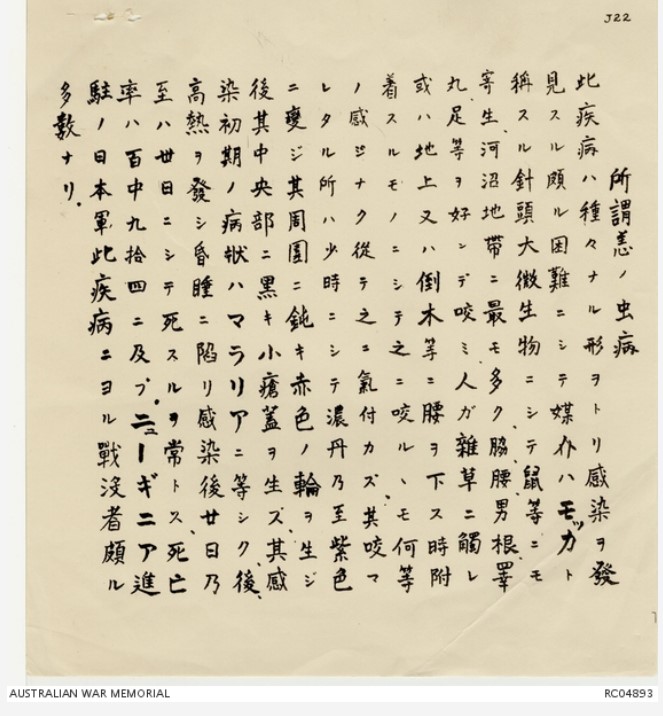 J22
所謂恙ノ虫病
此疾病ハ種々ナル形ヲトリ感染ヲ發
見スル頗ル困難ニシテ媒介ハモッカト
稱スル針頭大微生物ニシテ鼠等ニモ
寄生河沼地帶ニ最モ多ク、脇、腰、男根、睪
丸、足等ヲ好ンデ咬ミ人ガ雜草ニ觸レ
或ハ地上又ハ倒木等ニ腰ヲ下ス時附
着スルモノニシテ之ニ咬ルヽモ何等
ノ感ジナク從テ之ニ氣付カズ、其咬マ
レタル所ハ少時ニシテ濃丹乃至紫色
ニ變ジ其周圍ニ鈍キ赤色ノ輪ヲ生ジ
後其中央部ニ黒キ小瘡蓋ヲ生ズ、其感
染初期ノ病狀ハマラリアニ等シク、後、
高熱ヲ發シ昏睡ニ陷リ感染後廿日乃
至ハ廿日ニシテ死スルヲ常トス、死亡
率ハ百中九拾四ニ及ブ。ニューギニア進
駐ノ日本軍此疾病ニヨル戰没者頗ル
多數ナリ.
AUSTRALIAN WAR MEMORIAL
RC04893